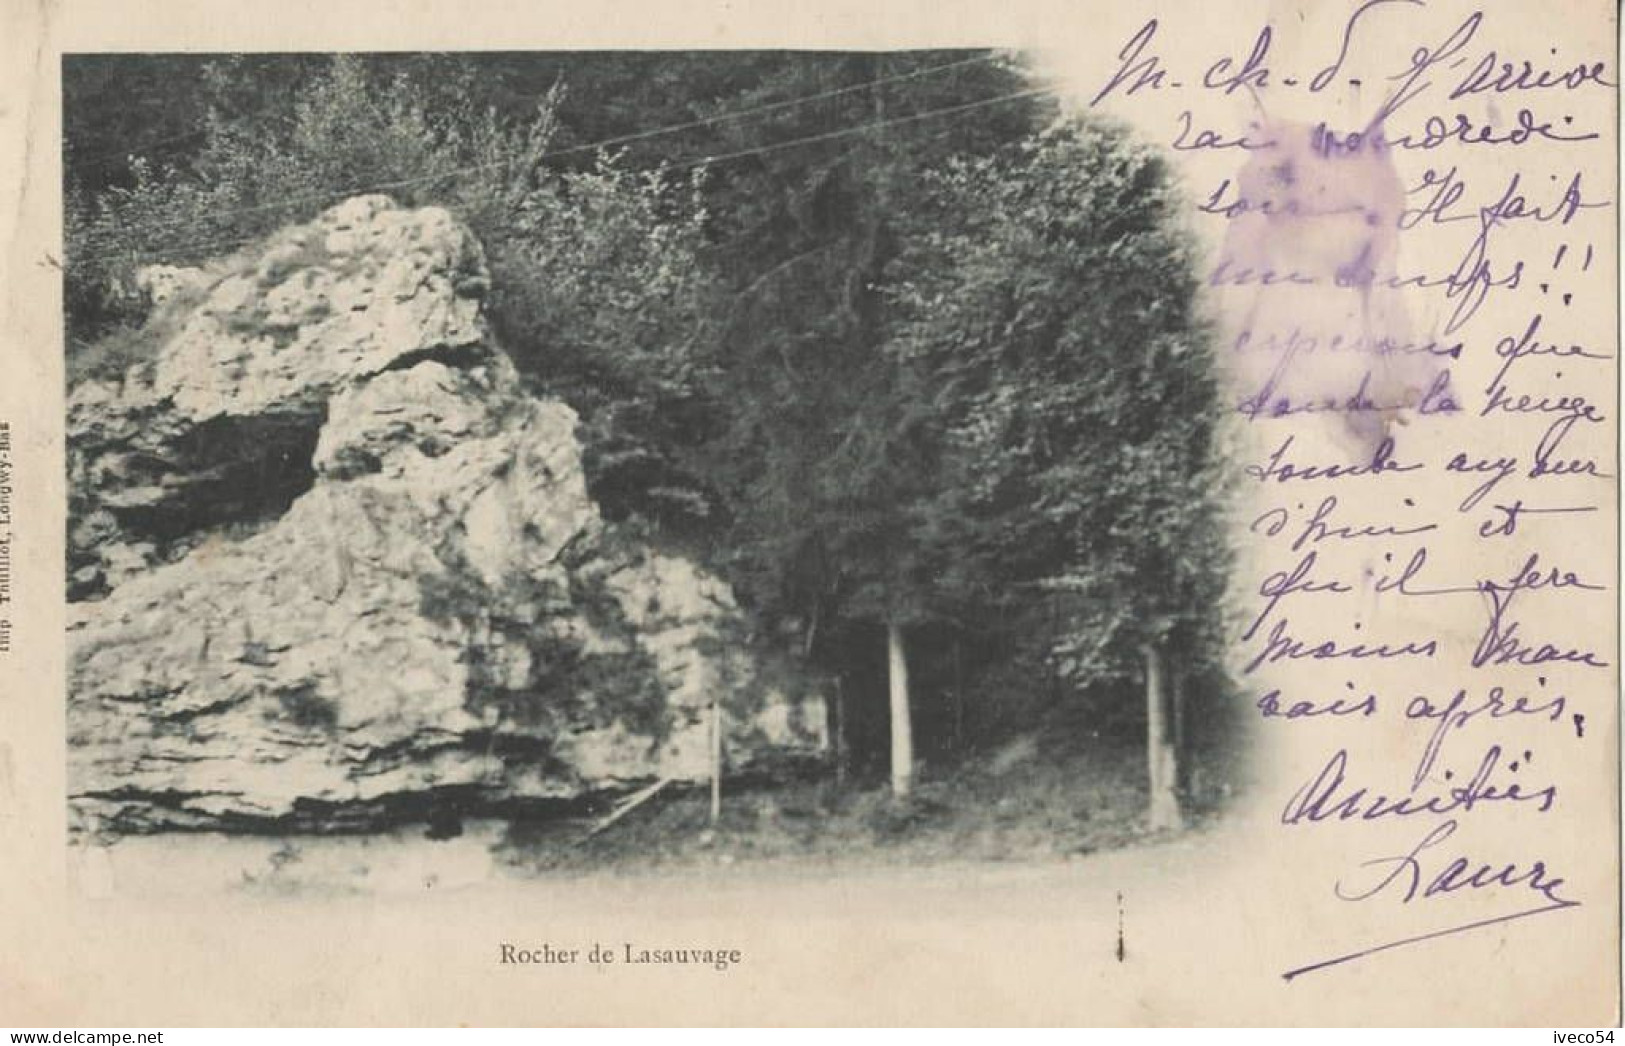 M. ch. d. J'arrive
rai vendredi
soir. Il fait
un temps!!
espérons que
toute la neige
tombe aujour
d'hui et
qu'il fera
moins mau
vais après.
Amitiés
Laure
Imp Thuillot, Longwy-Bas
Rocher de Lasauvage
www.delcampe.net
iveco54